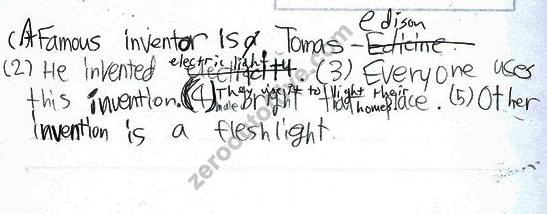 edison
(1) A Famous inventor Is a Tomas Edicine
(2) He invented electric light electricity. (3) Everyone uses
They use it to light their
this invention. (4) bright that place. (5) Other
home
invention is a fleshlight.